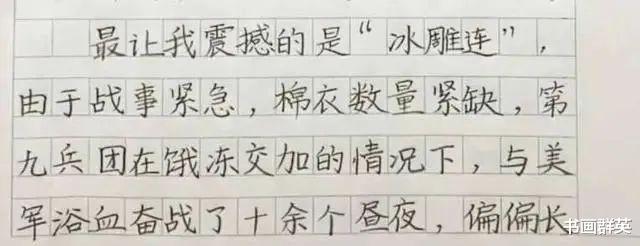 最让我震撼的是“冰雕连”，
由于战事紧急，棉衣数量紧缺，第
九兵团在饿冻交加的情况下，与美
军浴血奋战了十余个昼夜，偏偏长
书画群英